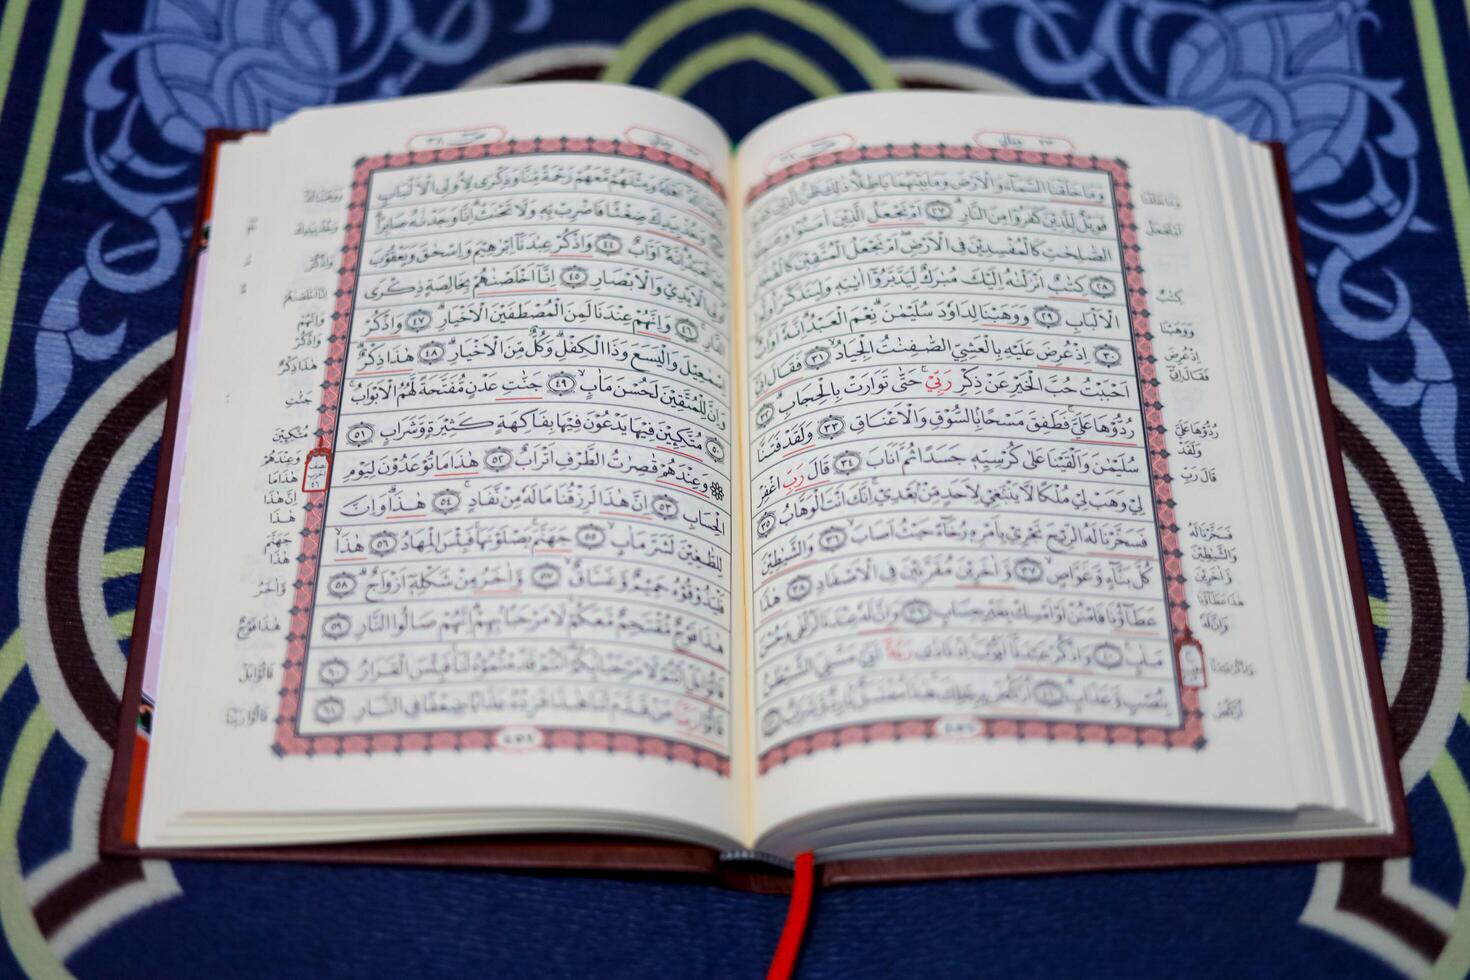 وَمَا خَلَقْنَا السَّمَٓاءَ وَالْاَرْضَ وَمَا بَيْنَهُمَا بَاطِلًا ذٰلِكَ ظَنُّ الَّذِينَ
فَوَيْلٌ لِلَّذِينَ كَفَرُوا مِنَ النَّارِ ﴿٢٧﴾ اَمْ نَجْعَلُ الَّذِينَ اٰمَنُوا وَعَمِلُوا
الصَّالِحَاتِ كَالْمُفْسِدِينَ فِي الْاَرْضِ اَمْ نَجْعَلُ الْمُتَّقِينَ كَالْفُجَّارِ
﴿٢٨﴾ كِتٰبٌ اَنْزَلْنٰهُ اِلَيْكَ مُبٰرَكٌ لِيَدَّبَّرُٓوا اٰيٰتِهٖ وَلِيَتَذَكَّرَ اُولُوا
الْاَلْبَابِ ﴿٢٩﴾ وَوَهَبْنَا لِدَاوُدَ سُلَيْمٰنَ نِعْمَ الْعَبْدُ اِنَّهُٓ اَوَّابٌ
﴿٣٠﴾ اِذْ عُرِضَ عَلَيْهِ بِالْعَشِيِّ الصّٰفِنٰتُ الْجِيَادُ ﴿٣١﴾ فَقَالَ اِنِّٓي
اَحْبَبْتُ حُبَّ الْخَيْرِ عَنْ ذِكْرِ رَبِّي حَتّٰى تَوَارَتْ بِالْحِجَابِ ﴿٣٢﴾
رُدُّوهَا عَلَيَّ فَطَفِقَ مَسْحًا بِالسُّوقِ وَالْاَعْنَاقِ ﴿٣٣﴾ وَلَقَدْ فَتَنَّا
سُلَيْمٰنَ وَاَلْقَيْنَا عَلٰى كُرْسِيِّهٖ جَسَدًا ثُمَّ اَنَابَ ﴿٣٤﴾ قَالَ رَبِّ اغْفِرْ
لِي وَهَبْ لِي مُلْكًا لَا يَنْبَغِي لِاَحَدٍ مِنْ بَعْدِي اِنَّكَ اَنْتَ الْوَهَّابُ ﴿٣٥﴾
فَسَخَّرْنَا لَهُ الرِّيحَ تَجْرِي بِاَمْرِهٖ رُخَٓاءً حَيْثُ اَصَابَ ﴿٣٦﴾ وَالشَّيٰطِينَ
كُلَّ بَنَّٓاءٍ وَغَوَّاصٍ ﴿٣٧﴾ وَاٰخَرِينَ مُقَرَّنِينَ فِي الْاَصْفَادِ ﴿٣٨﴾ هٰذَا
عَطَٓاؤُنَا فَامْنُنْ اَوْ اَمْسِكْ بِغَيْرِ حِسَابٍ ﴿٣٩﴾ وَاِنَّ لَهُ عِنْدَنَا لَزُلْفٰى وَحُسْنَ
مَاٰبٍ ﴿٤٠﴾ وَاذْكُرْ عَبْدَنَٓا اَيُّوبَ اِذْ نَادٰى رَبَّهُ اَنِّي مَسَّنِيَ الشَّيْطٰنُ
بِنُصْبٍ وَعَذَابٍ ﴿٤١﴾ اُرْكُضْ بِرِجْلِكَ هٰذَا مُغْتَسَلٌ بَارِدٌ وَشَرَابٌ ﴿٤٢﴾
اَهْلَهُ وَمِثْلَهُمْ مَعَهُمْ رَحْمَةً مِنَّا وَذِكْرٰى لِاُولِي الْاَلْبَابِ
وَخُذْ بِيَدِكَ ضِغْثًا فَاضْرِبْ بِهٖ وَلَا تَحْنَثْ اِنَّا وَجَدْنٰهُ صَابِرًا
الْعَبْدُ اِنَّهُٓ اَوَّابٌ ﴿٤٤﴾ وَاذْكُرْ عِبٰدَنَٓا اِبْرٰهِيمَ وَاِسْحٰقَ وَيَعْقُوبَ
اُولِي الْاَيْدِي وَالْاَبْصَارِ ﴿٤٥﴾ اِنَّٓا اَخْلَصْنٰهُمْ بِخَالِصَةٍ ذِكْرَى
الدَّارِ ﴿٤٦﴾ وَاِنَّهُمْ عِنْدَنَا لَمِنَ الْمُصْطَفَيْنَ الْاَخْيَارِ ﴿٤٧﴾ وَاذْكُرْ
اِسْمٰعِيلَ وَالْيَسَعَ وَذَا الْكِفْلِ وَكُلٌّ مِنَ الْاَخْيَارِ ﴿٤٨﴾ هٰذَا ذِكْرٌ
وَاِنَّ لِلْمُتَّقِينَ لَحُسْنَ مَاٰبٍ ﴿٤٩﴾ جَنّٰتِ عَدْنٍ مُفَتَّحَةً لَهُمُ الْاَبْوَابُ
﴿٥٠﴾ مُتَّكِـِٔينَ فِيهَا يَدْعُونَ فِيهَا بِفَاكِهَةٍ كَثِيرَةٍ وَشَرَابٍ ﴿٥١﴾
وَعِنْدَهُمْ قٰصِرٰتُ الطَّرْفِ اَتْرَابٌ ﴿٥٢﴾ هٰذَا مَا تُوعَدُونَ لِيَوْمِ
الْحِسَابِ ﴿٥٣﴾ اِنَّ هٰذَا لَرِزْقُنَا مَا لَهُ مِنْ نَفَادٍ ﴿٥٤﴾ هٰذَا وَاِنَّ
لِلطّٰغِينَ لَشَرَّ مَاٰبٍ ﴿٥٥﴾ جَهَنَّمَ يَصْلَوْنَهَا فَبِئْسَ الْمِهَادُ ﴿٥٦﴾ هٰذَا
فَلْيَذُوقُوهُ حَمِيمٌ وَغَسَّاقٌ ﴿٥٧﴾ وَاٰخَرُ مِنْ شَكْلِهٖٓ اَزْوَاجٌ ﴿٥٨﴾
هٰذَا فَوْجٌ مُقْتَحِمٌ مَعَكُمْ لَا مَرْحَبًا بِهِمْ اِنَّهُمْ صَالُوا النَّارِ ﴿٥٩﴾
قَالُوا بَلْ اَنْتُمْ لَا مَرْحَبًا بِكُمْ اَنْتُمْ قَدَّمْتُمُوهُ لَنَا فَبِئْسَ الْقَرَارُ ﴿٦٠﴾
قَالُوا رَبَّنَا مَنْ قَدَّمَ لَنَا هٰذَا فَزِدْهُ عَذَابًا ضِعْفًا فِي النَّارِ ﴿٦١﴾